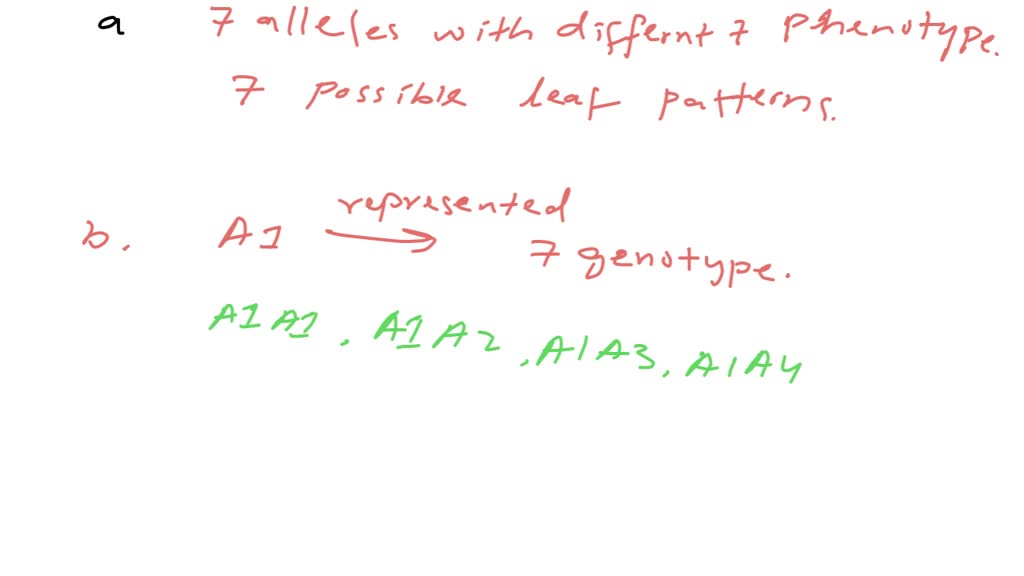 a 7 alleles with differnt 7 phenotype.
7 possible leaf patterns.
represented
b. A1 → 7 genotype.
A1A1, A1A2, A1A3, A1A4